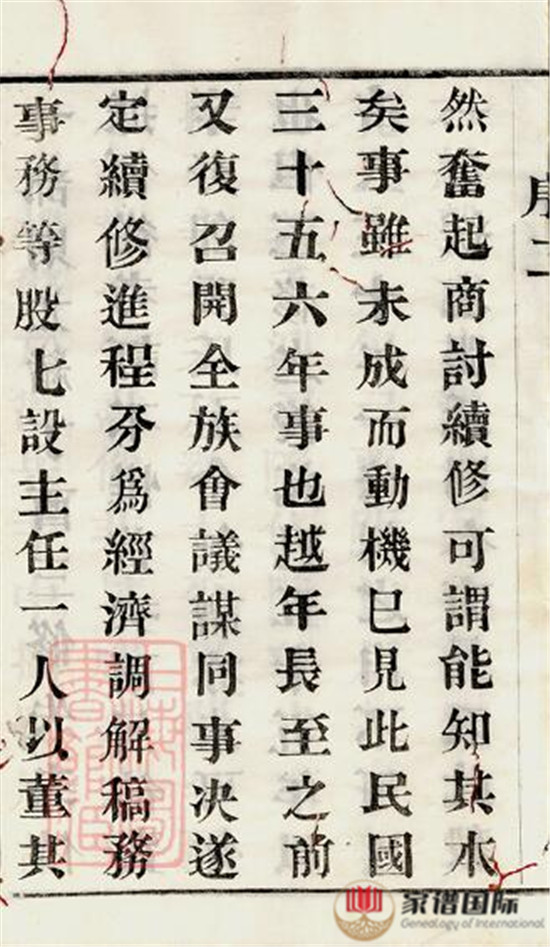 序二
然奮起商討續修可謂能知其木
矣事雖未成而動機已見此民國
三十五六年事也越年長至之前
又復召開全族會議謀同事决遂
定續修進程分爲經濟調解稿務
事務等股七設主任一人以董其
家谱国际
Genealogy of International